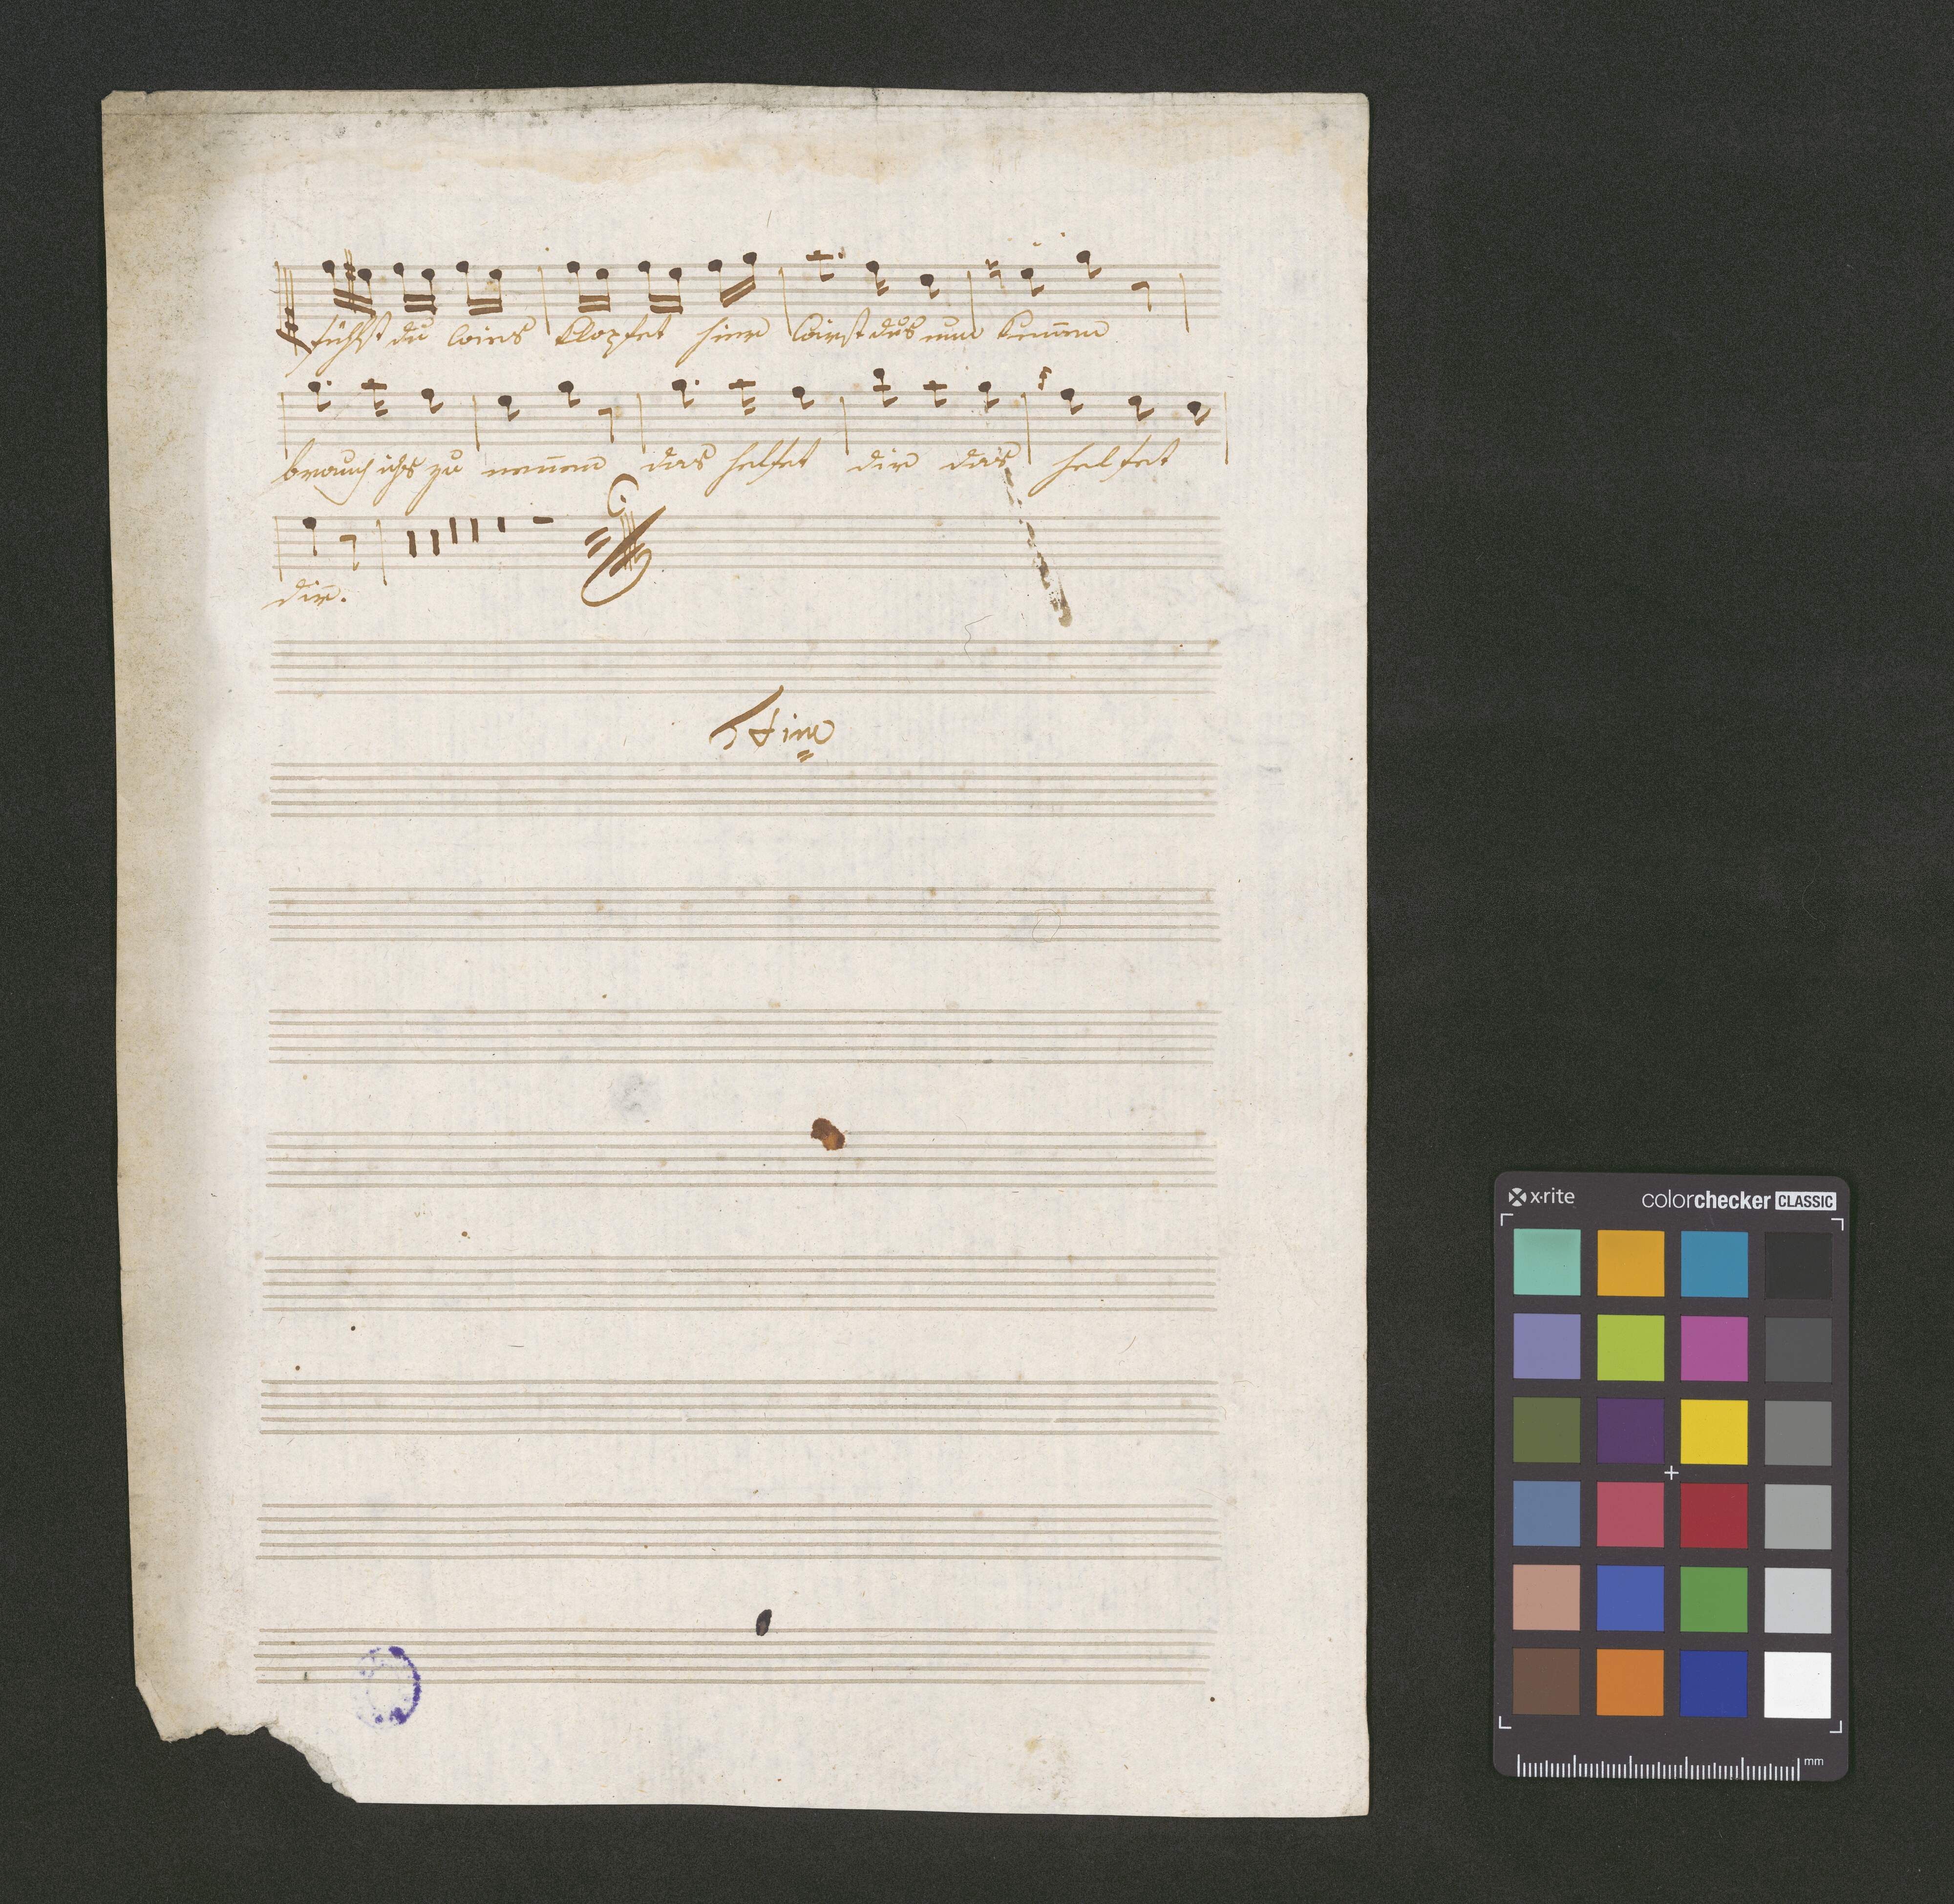 fühlst du wies klopfet hier wirst dus nun kennen
brauch ichs zu nennen das helfet dir das helfet
dir.
Fine
x·rite colorchecker CLASSIC
mm